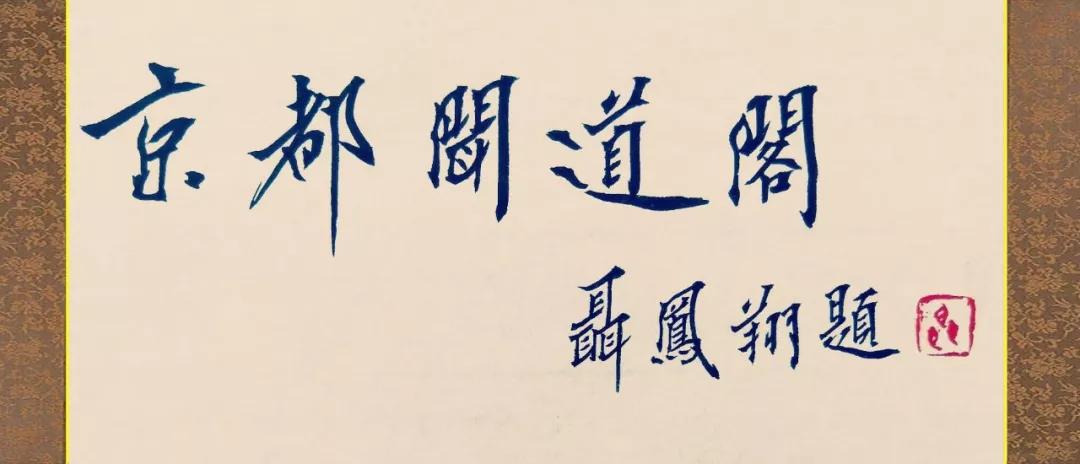 京都聞道閣
聶鳳翔題